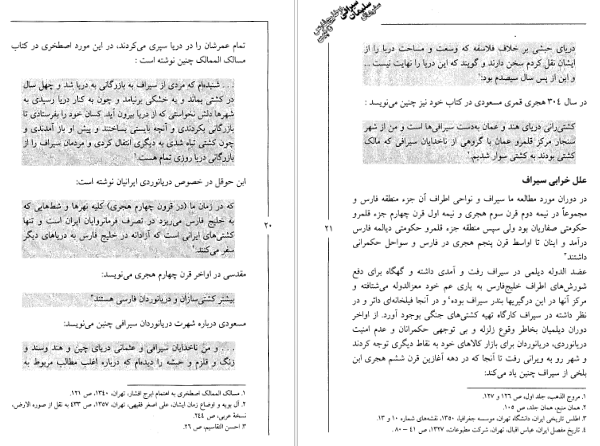 تمام عمرشان را در دریا سپری می‌کردند، در این مورد اصطخری در کتاب
مسالک الممالک چنین نوشته است :
... شنیده‌ام که مردی از سیراف به بازرگانی به دریا شد و چهل سال
در کشتی بماند و به خشکی برنیامد و چون به کنار دریا رسیدی به
شهرها دلش نخواستی که از دریا بیرون آید. کسان خود را بفرستادی تا
بازرگانی بکردندی و آنچه بایستی بساختند و پیش او باز آمدندی و
چون کشتی تباه شدی به دیگری انتقال کردی و مردمان سیراف را از
بازرگانی دریا روزی تمام هست.۱
ابن حوقل در خصوص دریانوردی ایرانیان نوشته است:
که در زمان ما (در قرون چهارم هجری) کلیه نهرها و شط‌هایی که
به خلیج فارس می‌ریزد در تصرف فرمانروایان ایران است و تنها
کشتی‌های ایرانی است که آزادانه در خلیج فارس به دریاهای دیگر
سفر می‌کنند.۲
مقدسی در اواخر قرن چهارم هجری می‌نویسد:
بیشتر کشتی‌سازان و دریانوردان فارسی هستند۳
مسعودی درباره شهرت دریانوردان سیرافی چنین می‌نویسد:
... و من ناخدایان سیرافی و عثمانی دریای چین و هند وسند و
زنگ و قلزم و حبشه را دیده‌ام که درباره اغلب مطالب مربوط به
۱. مسالک الممالک اصطخری به اهتمام ایرج افشار، تهران، ۱۳۴۰، ص ۱۲۱.
۲. آل بویه و اوضاع زمان ایشان، علی اصغر فقیهی، تهران، ۱۳۵۷، ص ۴۳۳ به نقل از صورة الارض،
نسخه عربی، ص ۲۴۴.
۳. احسن التقاسیم، ص ۲۶.
۲۰
سلیمان سیرافی
دریای حبشی بر خلاف فلاسفه که وسعت و مساحت دریا را از
ایشان نقل کردم سخن دارند و گویند که این دریا را نهایت نیست ...
و این از پس سال سیصدم بود.۱
در سال ۳۰۴ هجری قمری مسعودی در کتاب خود نیز چنین می‌نویسد :
کشتی‌رانی دریای هند و عمان به‌دست سیرافی‌ها است و من از شهر
سنجار مرکز قلمرو عمان با گروهی از ناخدایان سیرافی که مالک
کشتی بودند به کشتی سوار شدیم.۲
علل خرابی سیراف
در دوران مورد مطالعه ما سیراف و نواحی اطراف آن جزء منطقه فارس و
مجموعاً در نیمه دوم قرن سوم هجری و نیمه اول قرن چهارم جزء قلمرو
حکومتی صفاریان بود ولی سپس منطقه جزء قلمرو حکومتی دیالمه فارس
درآمد و اینان تا اواسط قرن پنجم هجری در فارس و سواحل حکمرانی
داشتند۳
عضد الدوله دیلمی در سیراف رفت و آمدی داشته و گهگاه برای دفع
شورش‌های اطراف خلیج‌فارس به یاری عم خود معزالدوله می‌شتافته و
مرکز آنها در این درگیریها بندر سیراف بوده۴ و در آنجا فیلخانه‌ای دائر و در
نظر داشته در سیراف کارگاه تهیه کشتی‌های جنگی بوجود آورد. از اواخر
دوران دیلمیان بخاطر وقوع زلزله و بی توجهی حکمرانان و عدم امنیت
دریانوردی، دریانوردان برای بازار کالاهای خود به نقاط دیگری توجه کردند
و شهر رو به ویرانی رفت تا آنجا که در دهه آغازین قرن ششم هجری ابن
بلخی از سیراف چنین یاد می‌کند:
۱. مروج الذهب، جلد اول، ص ۱۲۶ و ۱۲۷.
۲. همان منبع، همان جلد، ص ۱۰۵.
۳. اطلس تاریخی ایران، دانشگاه تهران، موسسه جغرافیا، ۱۳۵۰، نقشه‌های شماره ۱۰ و ۱۳.
۴. تاریخ مفصل ایران، عباس اقبال، تهران، شرکت مطبوعات، ۱۳۲۷، ص ۴۱ – ۸۰.
۲۱